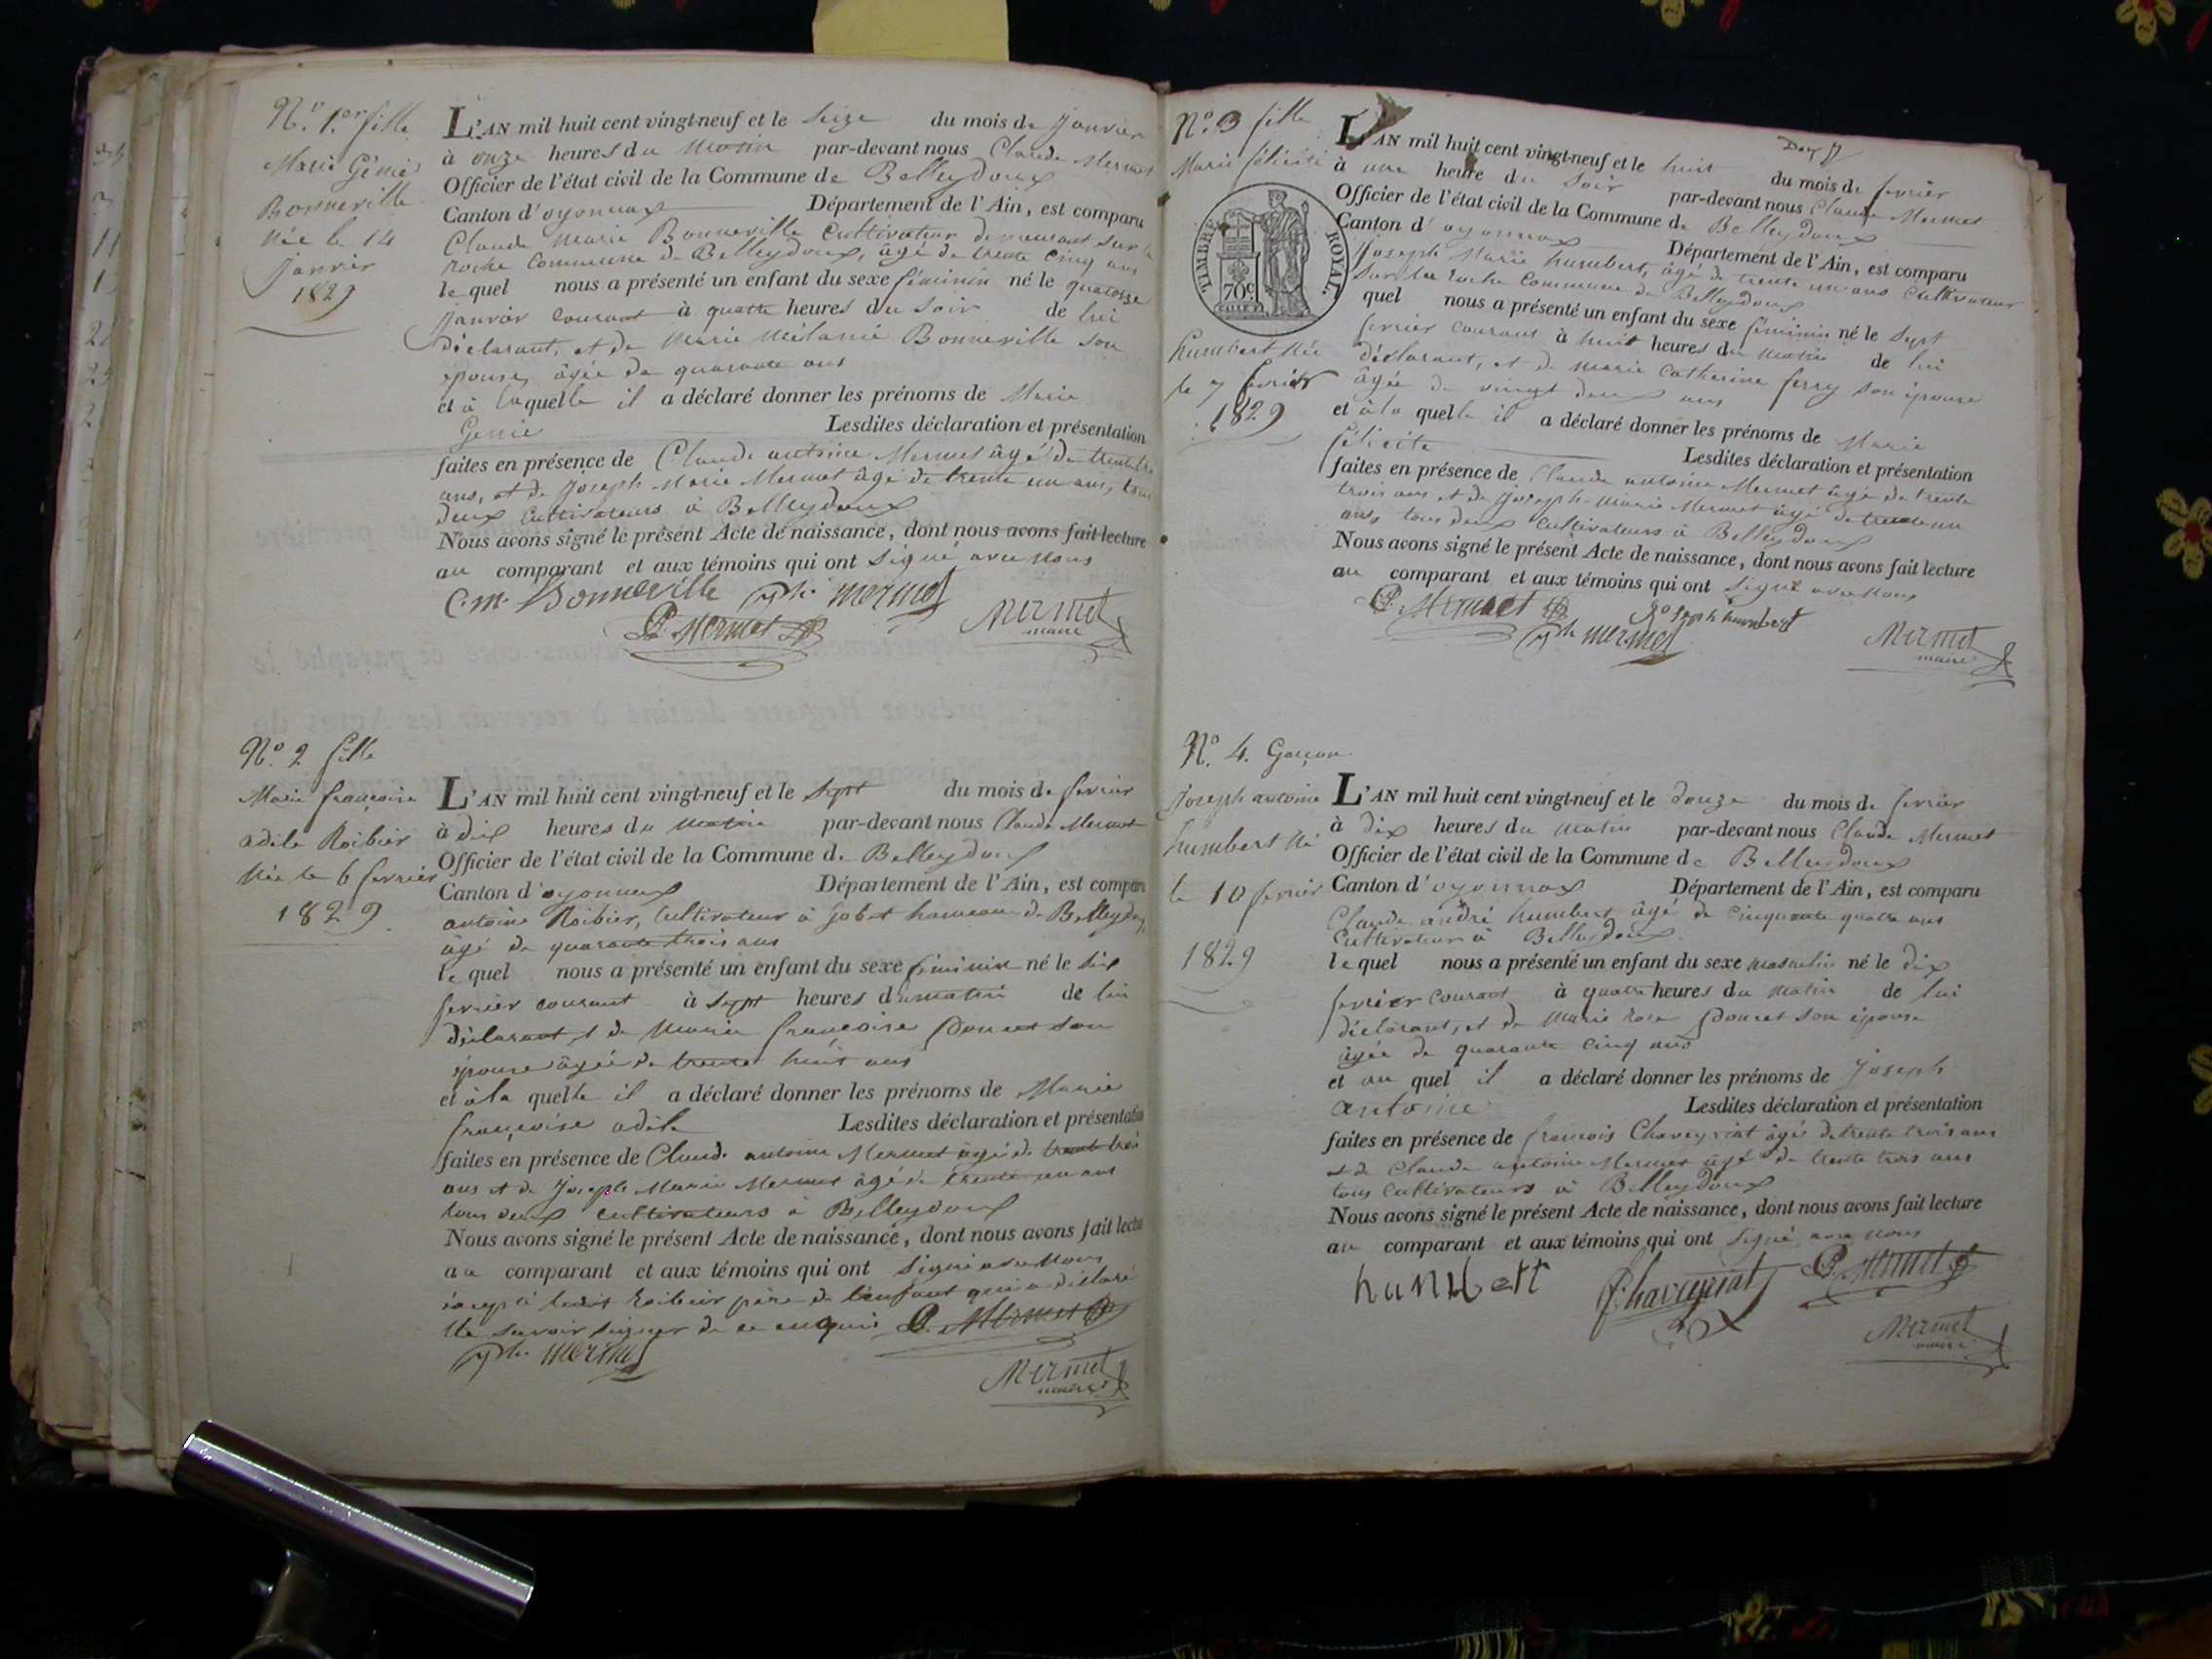 N.o 1.er fille
Marie Génie
Bonneville
Née le 14
janvier
1829
L'AN mil huit cent vingt-neuf et le Seize du mois de Janvier
à onze heures du matin par-devant nous Claude Mermet
Officier de l'état civil de la Commune de Belleydoux
Canton d'oyonnax Département de l'Ain, est comparu
Claude Marie Bonneville Cultivateur demeurant sur la
roche Commune de Belleydoux, âgé de trente cinq ans
lequel nous a présenté un enfant du sexe féminin né le quatorze
janvier courant à quatre heures du soir de lui
déclarant, et de Marie Mélanie Bonneville son
épouse, âgée de quarante ans
et à laquelle il a déclaré donner les prénoms de Marie
Génie Lesdites déclaration et présentation
faites en présence de Claude antoine Mermet âgé de trente trois
ans, et de Joseph Marie Mermet âgé de trente un ans, tous
deux Cultivateurs à Belleydoux
Nous avons signé le présent Acte de naissance, dont nous avons fait lecture
au comparant et aux témoins qui ont Signé avec Nous
C.m. Bonneville jph. mermet
C. Mermet
Mermet
maire
N.o 2 fille
Marie françoise
adèle Roibier
Née le 6 fevrier
1829
L'AN mil huit cent vingt-neuf et le Sept du mois de fevrier
à dix heures du matin par-devant nous Claude Mermet
Officier de l'état civil de la Commune de Belleydoux
Canton d'oyonnax Département de l'Ain, est comparu
antoine Roibier, Cultivateur à gobet hameau de Belleydoux,
âgé de quarante trois ans
lequel nous a présenté un enfant du sexe féminin né le Six
fevrier courant à sept heures du matin de lui
déclarant et de Marie françoise Poncet son
épouse âgée de trente huit ans
et à la quelle il a déclaré donner les prénoms de Marie
françoise adèle Lesdites déclaration et présentation
faites en présence de Claude antoine Mermet âgé de trente trois
ans et de Joseph Marie Mermet âgé de trente un ans
tous deux cultivateurs à Belleydoux
Nous avons signé le présent Acte de naissance, dont nous avons fait lecture
au comparant et aux témoins qui ont Signé avec Nous
excepté ledit Roibier père de l'enfant qui a déclaré
ne savoir signer de ce enquis C. Mermet
jph. mermet
Mermet
maire
N.o 3 fille
Marie félicité
TIMBRE ROYAL.
70c
humbert Née
le 7 fevrier
1829
Deux
L'AN mil huit cent vingt-neuf et le huit du mois de fevrier
à une heure du Soir par-devant nous Claude Mermet
Officier de l'état civil de la Commune de Belleydoux
Canton d'oyonnax Département de l'Ain, est comparu
Joseph Marie humbert, âgé de trente un ans Cultivateur
Sur la roche Commune de Belleydoux
quel nous a présenté un enfant du sexe féminin né le Sept
fevrier courant à huit heures du matin de lui
déclarant, et de Marie Catherine ferry son épouse
âgée de vingt deux ans
et à la quelle il a déclaré donner les prénoms de Marie
félicité Lesdites déclaration et présentation
faites en présence de Claude antoine Mermet âgé de trente
trois ans et de Joseph-Marie Mermet âgé de trente un
ans, tous deux cultivateurs à Belleydoux
Nous avons signé le présent Acte de naissance, dont nous avons fait lecture
au comparant et aux témoins qui ont Signé avec Nous
C. Mermet Joseph humbert
jph mermet
Mermet
maire
N.o 4. Garçon
Joseph antoine
humbert Né
le 10 fevrier
1829
L'AN mil huit cent vingt-neuf et le douze du mois de fevrier
à dix heures du matin par-devant nous Claude Mermet
Officier de l'état civil de la Commune de Belleydoux
Canton d'oyonnax Département de l'Ain, est comparu
Claude andré humbert âgé de cinquante quatre ans
Cultivateur à Belleydoux
lequel nous a présenté un enfant du sexe masculin né le dix
fevrier courant à quatre heures du matin de lui
déclarant, et de Marie rose Poncet son épouse
âgée de quarante cinq ans
et au quel il a déclaré donner les prénoms de Joseph
antoine Lesdites déclaration et présentation
faites en présence de françois Chaveyriat âgé de trente trois ans
et de Claude antoine Mermet âgé de trente trois ans
tous cultivateurs à Belleydoux
Nous avons signé le présent Acte de naissance, dont nous avons fait lecture
au comparant et aux témoins qui ont Signé avec nous
humbert f. chaveyriat C. Mermet
Mermet
maire